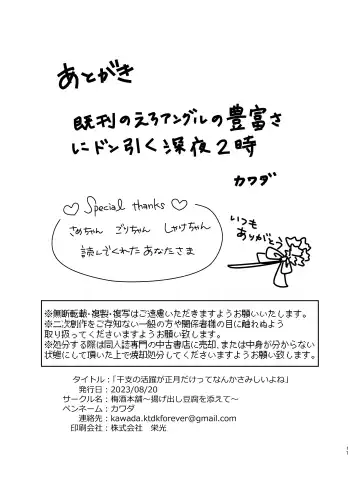 あとがき
既刊のえろアングルの豊富さ
にドン引く深夜2時
カワダ
Special thanks
さめちゃん ごりちゃん しかけちゃん
読んでくれたあなたさま
いつも
ありがとう
※無断転載・複製・複写はご遠慮いただきますようお願いいたします。
※二次創作をご存知ない一般の方や関係者様の目に触れぬよう
取り扱ってくださいますようお願い致します。
※処分する際は同人誌専門の中古書店に売却、または中身が分からない
状態にして頂いた上で焼却処分してくださいますようお願い致します。
タイトル:「干支の活躍が正月だけってなんかさみしいよね」
発行日:2023/08/20
サークル名:梅酒本舗~揚げ出し豆腐を添えて~
ペンネーム:カワダ
連絡先:kawada.ktdkforever@gmail.com
印刷会社:株式会社 栄光